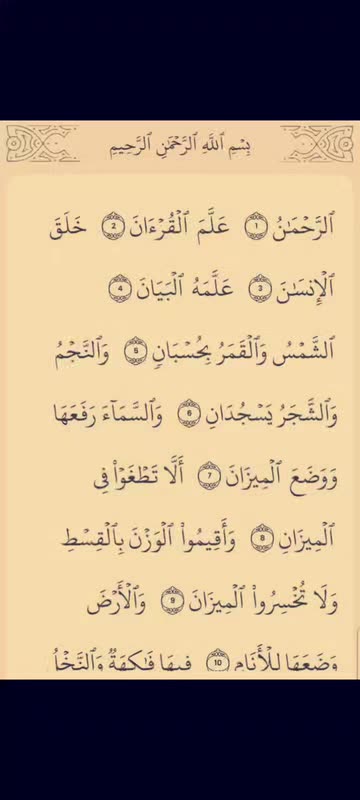 بِسْمِ ٱللَّهِ ٱلرَّحْمَٰنِ ٱلرَّحِيمِ
ٱلرَّحْمَٰنُ ١ عَلَّمَ ٱلْقُرْءَانَ 2 خَلَقَ
ٱلْإِنسَٰنَ 3 عَلَّمَهُ ٱلْبَيَانَ 4
ٱلشَّمْسُ وَٱلْقَمَرُ بِحُسْبَانٍ 5 وَٱلنَّجْمُ
وَٱلشَّجَرُ يَسْجُدَانِ 6 وَٱلسَّمَآءَ رَفَعَهَا
وَوَضَعَ ٱلْمِيزَانَ 7 أَلَّا تَطْغَوْا۟ فِى
ٱلْمِيزَانِ 8 وَأَقِيمُوا۟ ٱلْوَزْنَ بِٱلْقِسْطِ
وَلَا تُخْسِرُوا۟ ٱلْمِيزَانَ 9 وَٱلْأَرْضَ
وَضَعَهَا لِلْأَنَامِ 10 فِيهَا فَٰكِهَةٌ وَٱلنَّخْلُ